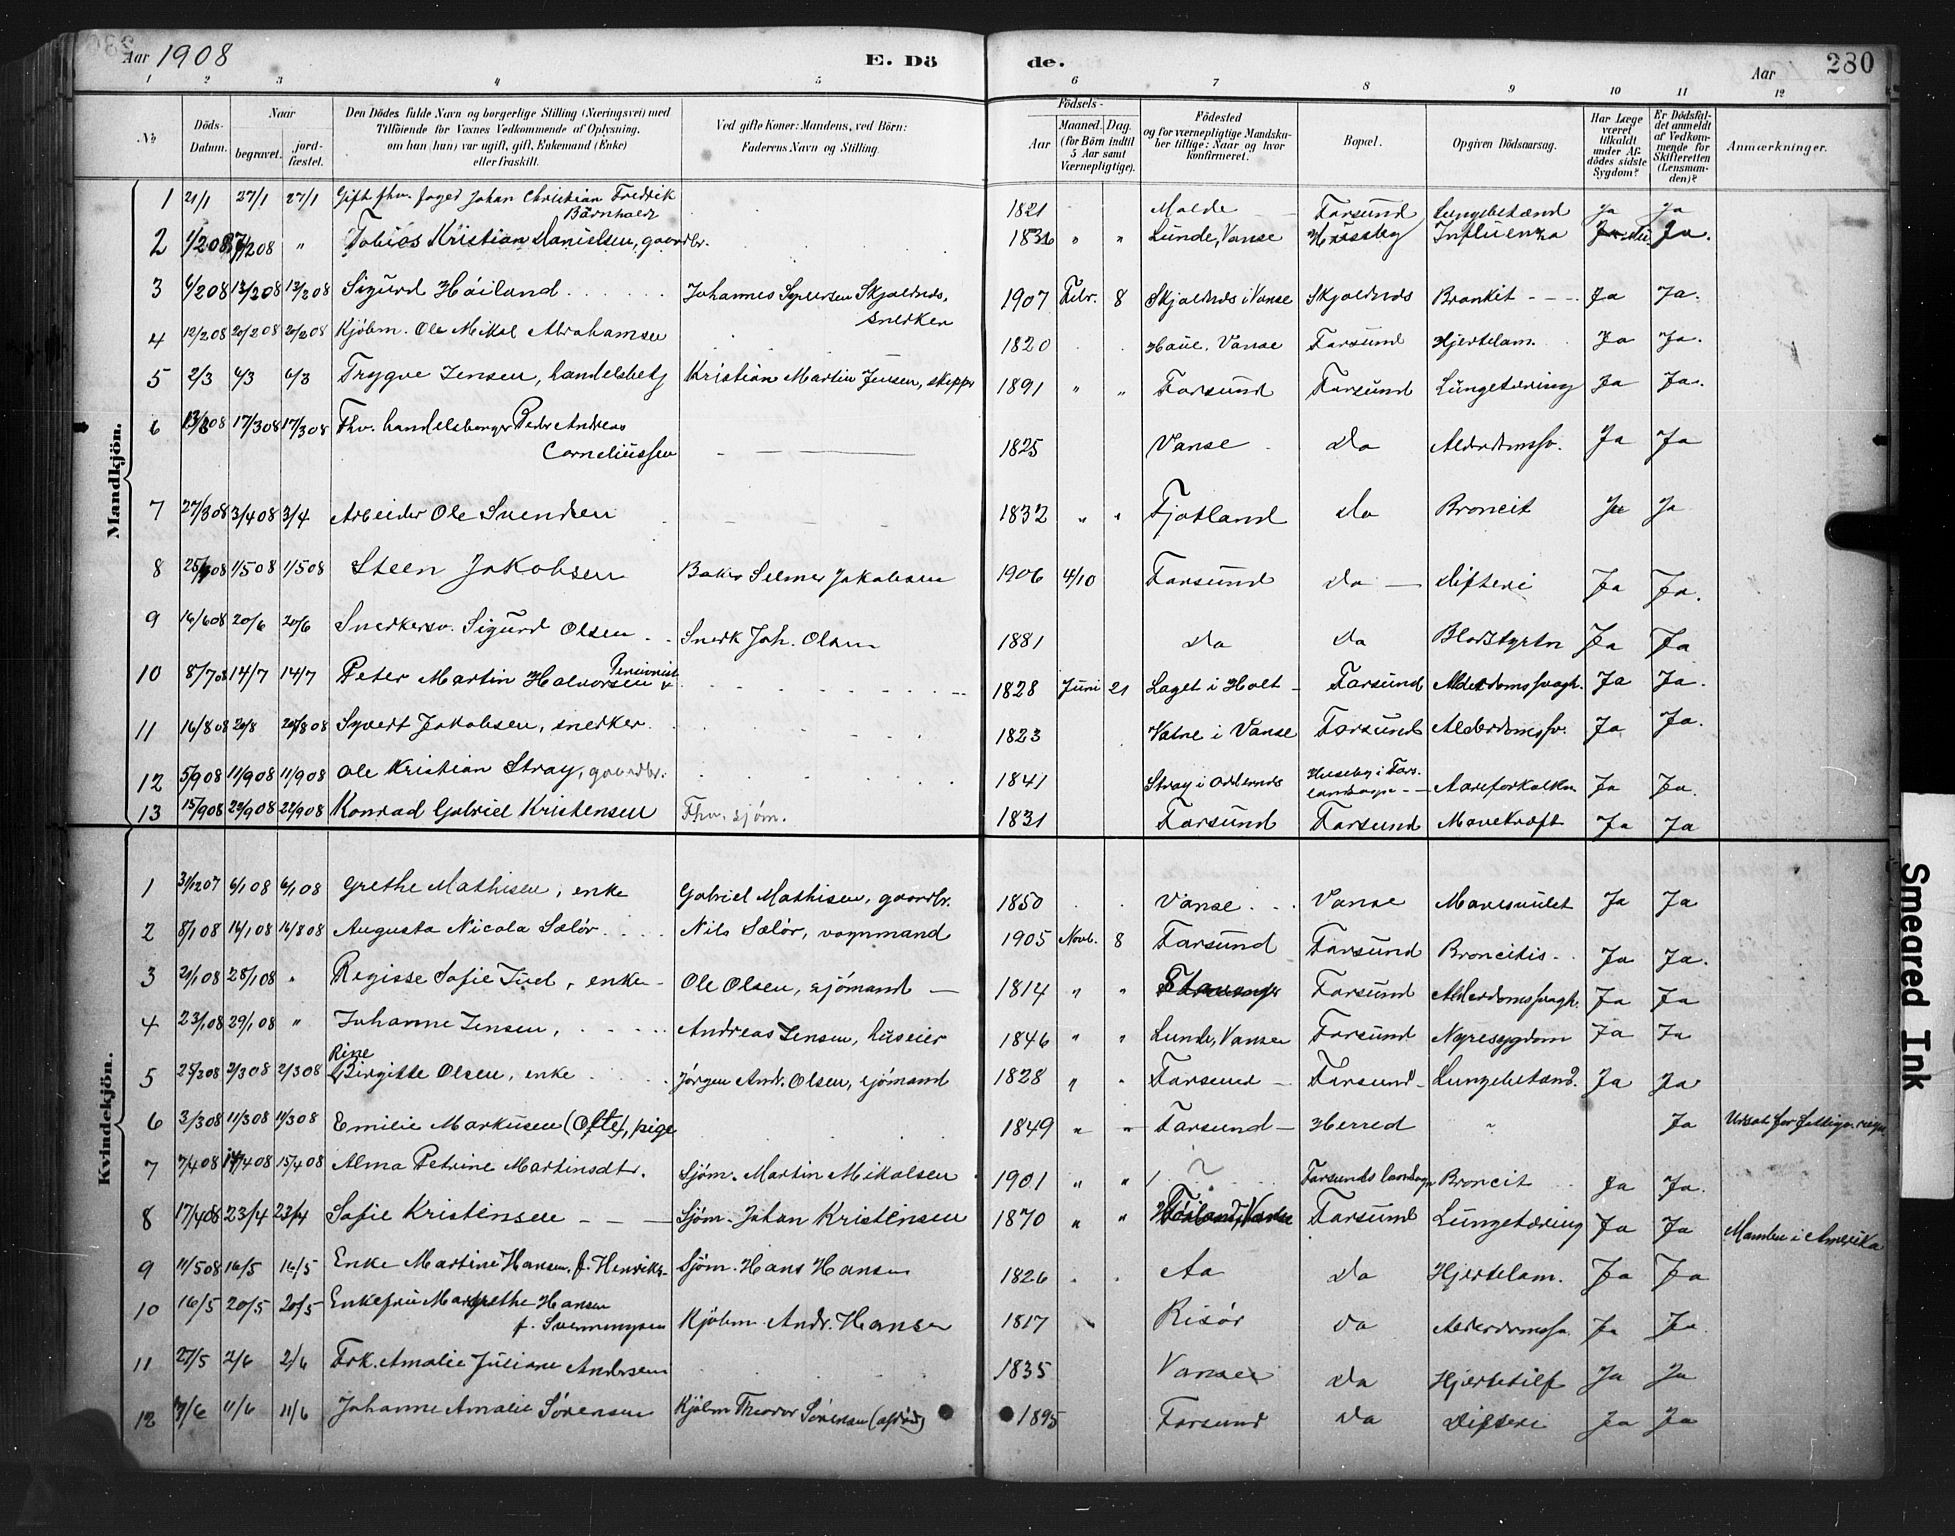 Aar 1908 E. Dö de. Aar 280
1 2 3 4 5 6 7 8 9 10 11 12
No Döds-Datum. Naar begravet. jord-fæstet. Den Dödes fulde Navn og borgerlige Stilling (Næringsvei) med Tilföiende for Voxnes Vedkommende af Oplysning. om han (hun) var ugift, gift, Enkemand (Enke) eller fraskilt. Ved gifte Koner: Mandens, ved Börn: Faderens Navn og Stilling. Födsels- Aar Maaned. Dag. (for Börn indtil 5 Aar samt Værnepligtige). Födested og for værnepligtige Mandska-ber tillige: Naar og hvor konfirmeret. Bopæl. Opgiven Dödsaarsag. Har Læge været tilkaldt under Af-dödes sidste Sygdom? Er Dödsfal-det anmeldt af Vedkom-mende for Skifteretten (Lensman-den)? Anmærkninger.
Mandkjön.
1 21/1 27/1 27/1 Gift fhv. foged Johan Christian Fredrik Bärnholdt 1821 Molde Farsund Lungebetænd Ja Ja
2 1/2 08 /2 08 " Tobias Kristian Danielsen, gaardbr. 1836 " " Lunde, Vanse Huseby Influenza Ja.
3 6/2 08 13/2 08 13/2 08 Sigurd Höiland Johannes Skjoldnes, snedker 1907 Febr. 8 Skjoldnes i Vanse Skjoldnes Bronkit Ja Ja.
4 12/2 08 20/2 08 20/2 08 Kjöbm. Ole Mikal Abrahamsen 1820 Haue, Vanse Farsund Hjertelam. Ja Ja.
5 2/3 6/3 6/3 Trygve Jensen, handelsbetj Kristian Martin Jensen, skippr 1891 " " Farsund Farsund Lungetæring Ja Ja.
6 13/3 08 17/3 08 17/3 08 Fhv. handelsborger Peder Andreas Corneliussen 1825 Vanse do Alderdomssv. Ja Ja
7 27/3 08 3/4 08 3/4 Arbeider Ole Svendsen 1832 " " Fjotland do Broncit Ja Ja
8 25/4 08 1/5 08 1/5 08 Steen Jakobsen Baker Selmer Jakobsen 1906 4/10 Farsund do Difteri Ja Ja.
9 16/6 08 20/6 20/6 Snedkersv. Sigurd Olsen Snedk Joh. Olsen 1881 do do Blodstyrtn Ja Ja
10 8/7 08 14/7 14/7 Peter Martin Halvorsen Pensionist 1828 Juni 21 Laget i Holt Farsund Alderdomssvagh. Ja Ja.
11 16/8 08 20/8 20/8 08 Syvert Jakobsen, snedker 1823 Vatne i Vanse Farsund Alderdomssv. Ja Ja.
12 5/9 08 11/9 08 11/9 08 Ole Kristian Stray, gaardbr. 1841 Stray i Oddernes Huseby i Fars. landsogn Aareforkalkn Ja Ja.
13 15/9 08 22/9 08 22/9 08 Konrad Gabriel Kristensen Fhv. sjøm. 1831 Farsund Farsund Mavekræft Ja Ja
Kvindekjön.
1 31/12 07 6/1 08 6/1 08 Grethe Mathisen, enke Gabriel Mathisen, gaardbr. 1850 Vanse Vanse Ja Ja
2 8/1 08 16/1 08 16/ 08 Augusta Nicola Sælör Nils Sælör, vognmand 1905 Novb. 8 Farsund Farsund Broncitis Ja Ja.
3 21/1 08 28/1 08 " Regisse Sofie Juel, enke Ole Olsen, sjömand 1814 " " Stavanger Farsund Alderdomssvagh. Ja Ja
4 23/1 08 29/1 08 " Johanne Jensen, Andreas Jensen, huseier 1846 " " Lunde, Vanse Farsund Nyresygdom Ja Ja
5 2/2 08 2/3 08 2/3 08 Rine Birgitte Olsen, enke Jörgen Andr. Olsen, sjömand 1828 " " Farsund Farsund Lungebetænd. Ja Ja
6 3/3 08 11/3 08 11/3 08 Emilie Markusen (Ofte), pige 1849 " " Farsund Herred " Ja for fattigv.
7 7/4 08 /4 08 15/4 08 Alma Petrine Martinsdtr. Sjöm. Martin Mikalsen 1901 " " ? Farsunds landsogn Broncit Ja Ja.
8 17/4 08 23/4 23/4 Sofie Kristensen Sjöm. Johan Kristensen 1870 " " Farsund Lungetæring Ja Ja Manden i Amerika
9 11/5 08 16/5 16/5 Enke Martine Hansen, f. Henriks- Sjöm. Hans Hansen 1826 Aa do Hjertelam. Ja Ja
10 16/5 20/5 20/5 Enkefru Margrethe Hansen f. Svenningsen Kjöbm. Andr. Hansen 1817 Risör do Alderdomssv. Ja Ja.
11 27/5 2/6 2/6 Frk. Amalie Juliane Andersen 1835 Vanse do Hjertetilf Ja Ja
12 7/6 11/6 11/6 Johanne Amalie Sörensen Kjöbm Theodor Sörensen (afdöd) 1895 Farsund do Difteri Ja Ja
Smeared Ink